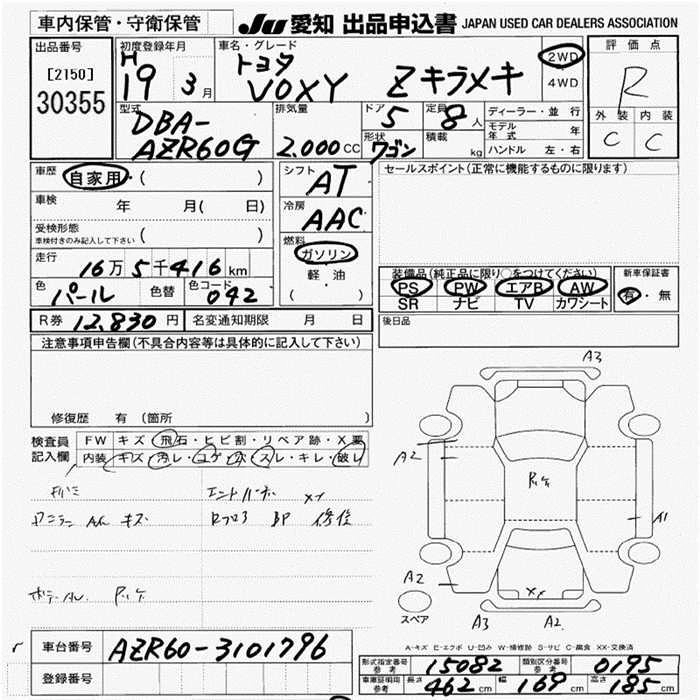 車内保管・守衛保管 JU 愛知 出品申込書 JAPAN USED CAR DEALERS ASSOCIATION
出品番号 初度登録年月 車名・グレード 2WD 評価点
[2150] H19 3月 トヨタ VOXY Zキラメキ 4WD R
30355
型式 排気量 ドア 定員 ディーラー・並行 外装 内装
DBA- 5 8人 モデル年式 年 C C
AZR60G 2.000 CC 形状 ワゴン 積載 kg ハンドル 左・右
車歴 自家用・( ) シフト AT セールスポイント(正常に機能するものに限ります)
車検 年 月( 日) 冷房 AAC
受検形態 ( )
車検付きのみ記入して下さい
燃料 ガソリン
走行 16万5千416km 軽・油
( )
装備品(純正品に限り○をつけてください) 新車保証書
PS PW エアB AW 有・無
SR ナビ TV カワシート
色 パール 色替 色コード 042
R券 12,830円 名変通知期限 月 日 後日品
注意事項申告欄(不具合内容等は具体的に記入して下さい)
修復歴 有(箇所 )
検査員 FW キズ・飛石・ヒビ割・リペア跡・X要
記入欄 内装 キズ・汚レ・コゲ・穴・スレ・キレ・破レ
キズ
修復
A3
A2
A1
A2
A3 A2
XX
スペア
A-キズ E-エクボ U-凹み W-補修跡 S-サビ C-腐食 XX-交換済
車台番号 AZR60-3101796
登録番号
形式指定番号 参考 15082 類別区分番号 参考 0195
車庫証明用 参考 長さ 462cm 幅 169cm 高さ 185cm